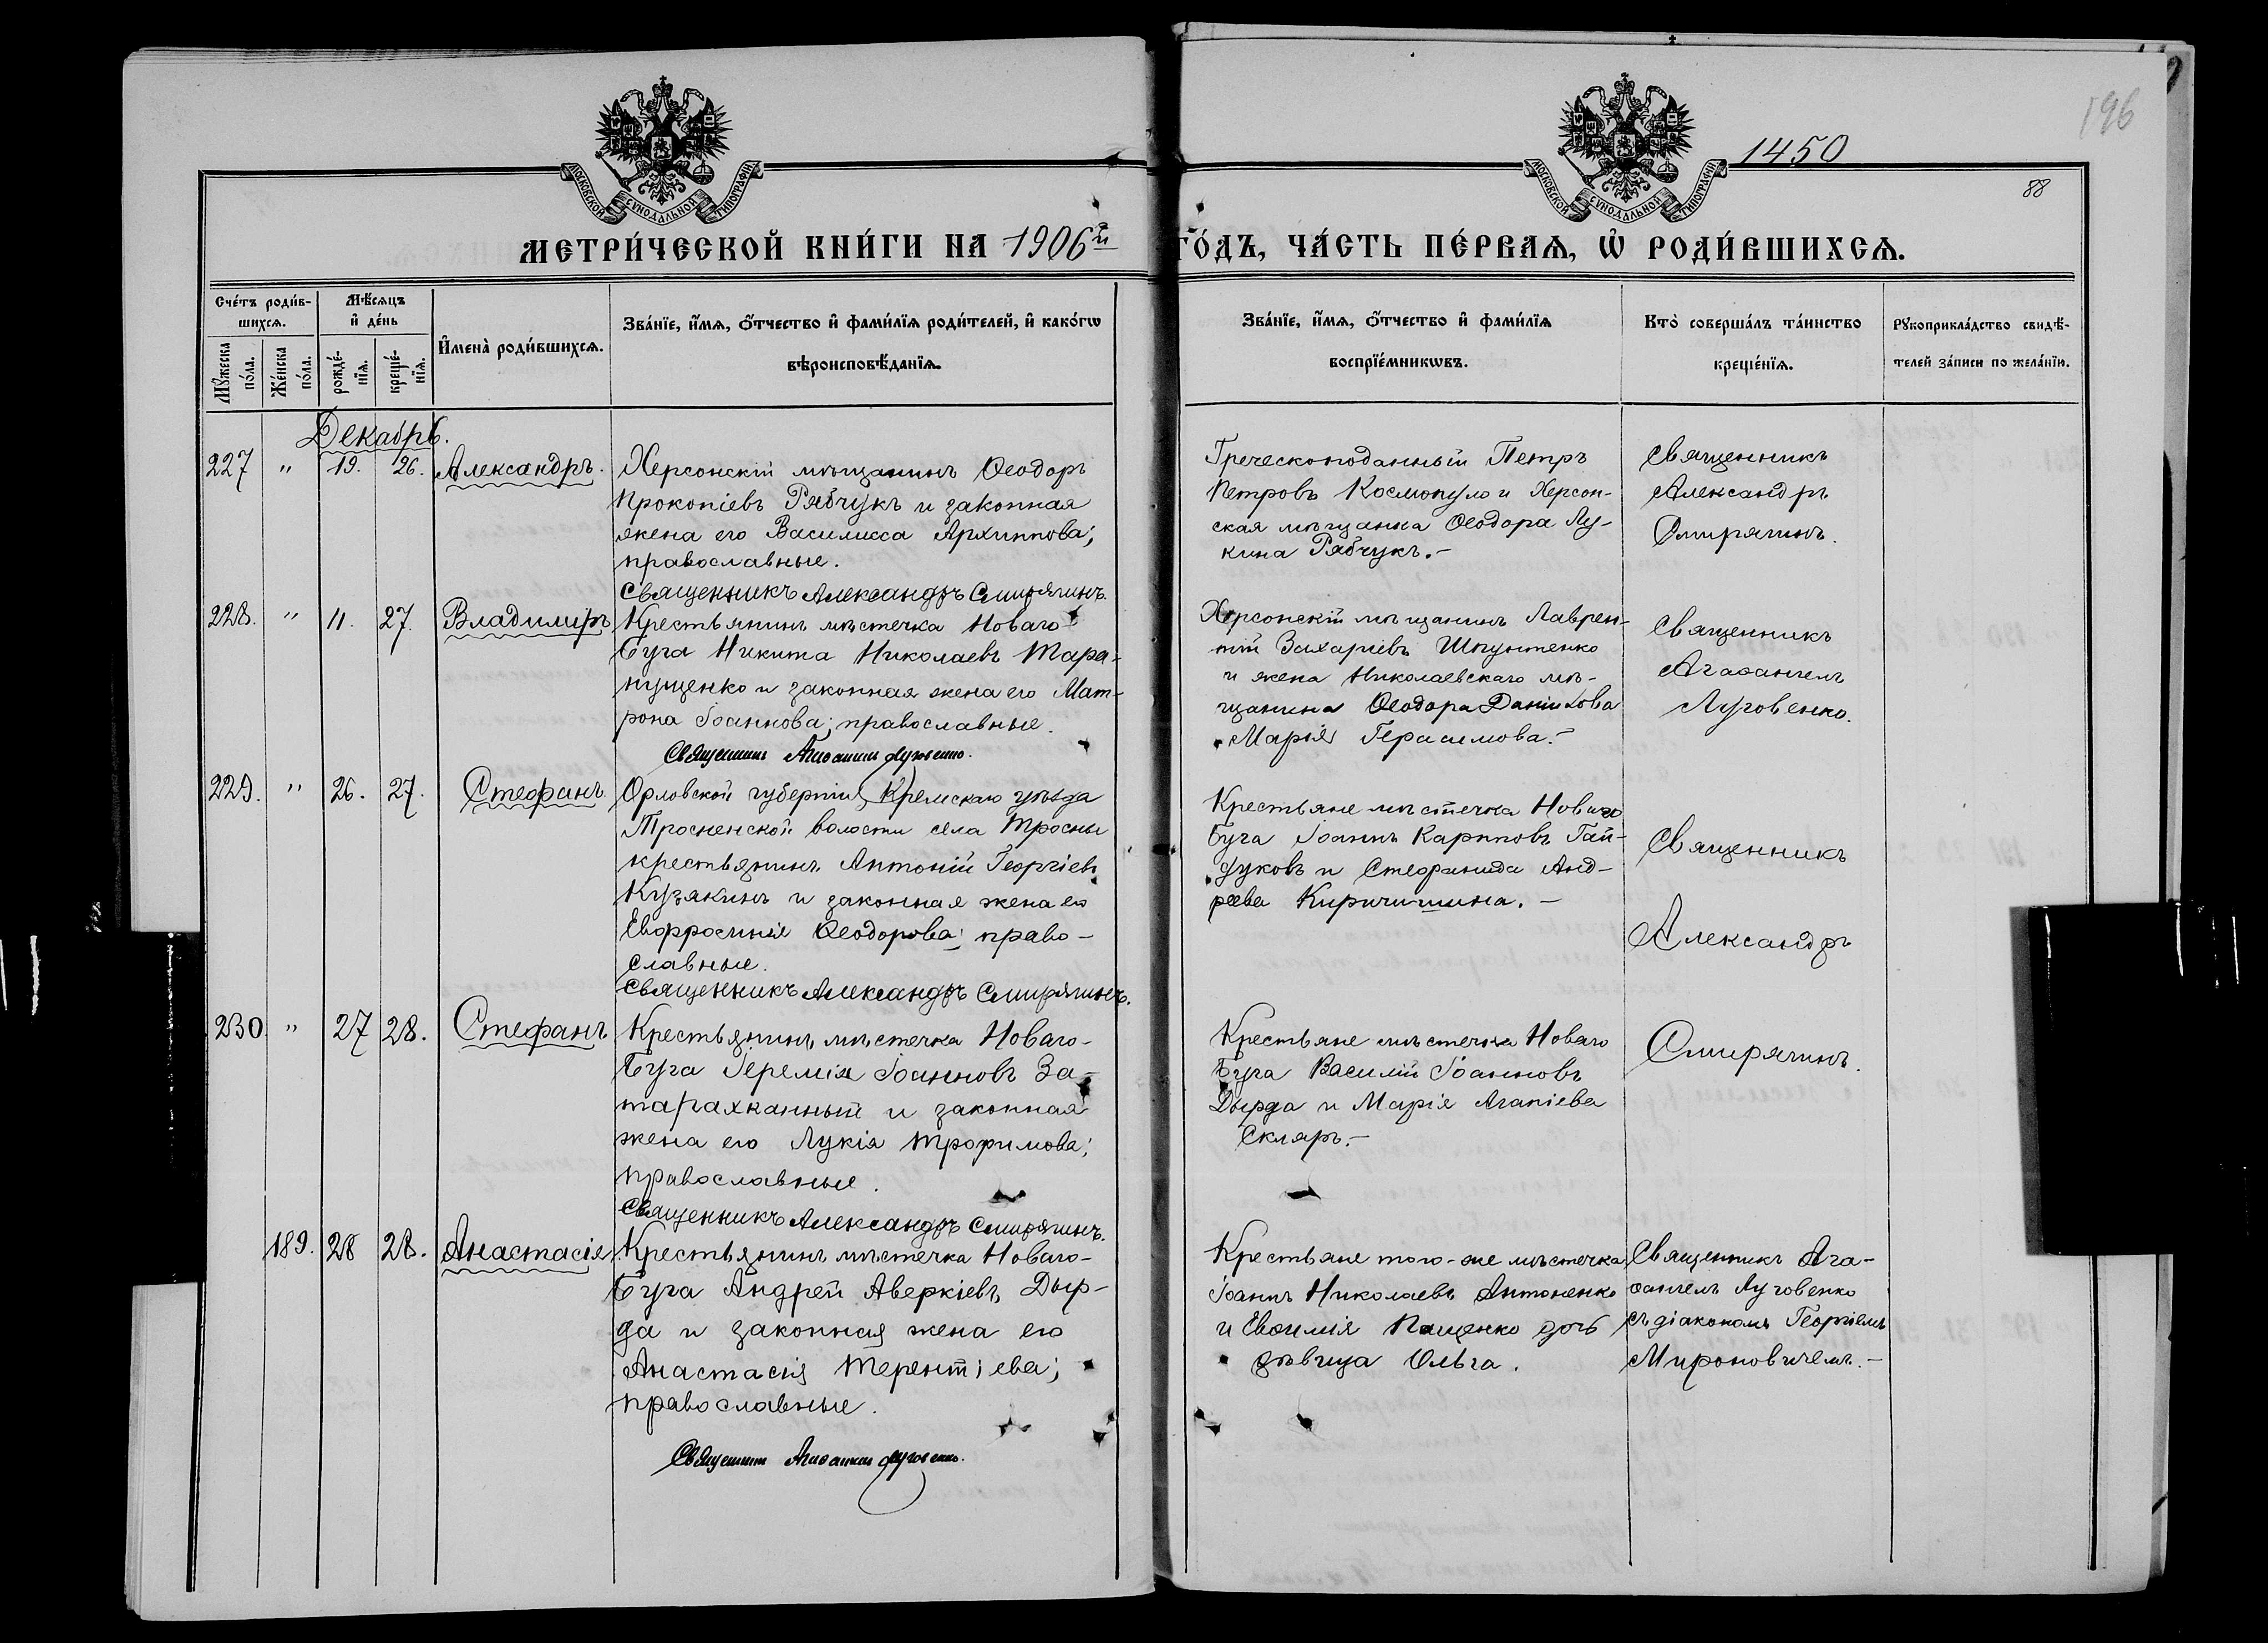 196
1450
88
МОСКОВСКОЙ СУНОДАЛЬНОЙ ТИПОГРАФІИ
МОСКОВСКОЙ СУНОДАЛЬНОЙ ТИПОГРАФІИ
МЕТРИ́ЧЕСКОЙ КНИ́ГИ НА 1906й
ГО́ДЪ, ЧА́СТЬ ПЕ́РВАѦ, Ѡ҆ РОДИ́ВШИХСѦ.
Сче́тъ роди́в-
шихсѧ.
Мѣ́сѧцъ
и҆ де́нь
Мꙋ́жеска по́ла.
Же́нска по́ла.
рожде́-нїѧ.
креще́-нїѧ.
И҆мена̀ роди́вшихсѧ.
Зва́нїе, и҆́мѧ, ѻ҆́тчество и҆ фами́лїѧ роди́телей, и҆ како́гѡ
вѣроисповѣ́данїѧ.
Зва́нїе, и҆́мѧ, ѻ҆́тчество и҆ фами́лїѧ
воспрїе́мникѡвъ.
Кто̀ соверша́лъ та́инство
креще́нїѧ.
Рꙋкоприкла́дство свидѣ́-
телей за́писи по жела́нїи.
Декабрь.
227 " 19. 26. Александръ.
Херсонскій мѣщанинъ Ѳеодоръ
Прокопіевъ Рябчукъ и законная
жена его Василисса Архиппова;
православные.
Священникъ Александръ Смирягинъ.
Греческоподанный Петръ
Петровъ Космопуло и Херсон-
ская мѣщанка Ѳеодора Лу-
кина Рябчукъ.-
Священникъ
Александръ
Смирягинъ.
228. " 11. 27. Владиміръ
Крестьянинъ мѣстечка Новаго
Буга Никита Николаевъ Тара-
нущенко и законная жена его Мат-
рона Іоаннова; православные.
Священникъ Агаѳангелъ Луговенко.
Херсонскій мѣщанинъ Лаврен-
тій Захаріевъ Шпунтенко
и жена Николаевскаго мѣ-
щанина Ѳеодора Данилова
Марія Герасимова.-
Священникъ
Агаѳангелъ
Луговенко.
229. " 26. 27. Стефанъ.
Орловской губерніи, Кремскаго уѣзда
Тросненской волости села Тросны
крестьянинъ Антоній Георгіевъ
Кузякинъ и законная жена его
Евфросинія Ѳеодорова; право-
славные.
Священникъ Александръ Смирягинъ.
Крестьяне мѣстечка Новаго
Буга Іоаннъ Карповъ Гай-
дуковъ и Стефанида Анд-
реева Киричишина.-
Священникъ
Александръ
Смирягинъ.
230 " 27 28. Стефанъ
Крестьянинъ мѣстечка Новаго-
Буга Іеремія Іоанновъ За-
тарахканный и законная
жена его Лукія Трофимова;
православные.
Священникъ Александръ Смирягинъ.
Крестьяне мѣстечка Новаго
Буга Василій Іоанновъ
Дырда и Марія Агапіева
Скляръ.-
189. 28 28. Анастасія
Крестьянинъ мѣстечка Новаго-
Буга Андрей Аверкіевъ Дыр-
да и законная жена его
Анастасія Терентіева;
православные.
Священникъ Агаѳангелъ Луговенко.
Крестьяне того-же мѣстечка
Іоаннъ Николаевъ Антоненко
и Евѳимія Пащенко дочь
дѣвица Ольга.
Священникъ Ага-
ѳангелъ Луговенко
съ діакономъ Георгіемъ
Мироновичемъ.-